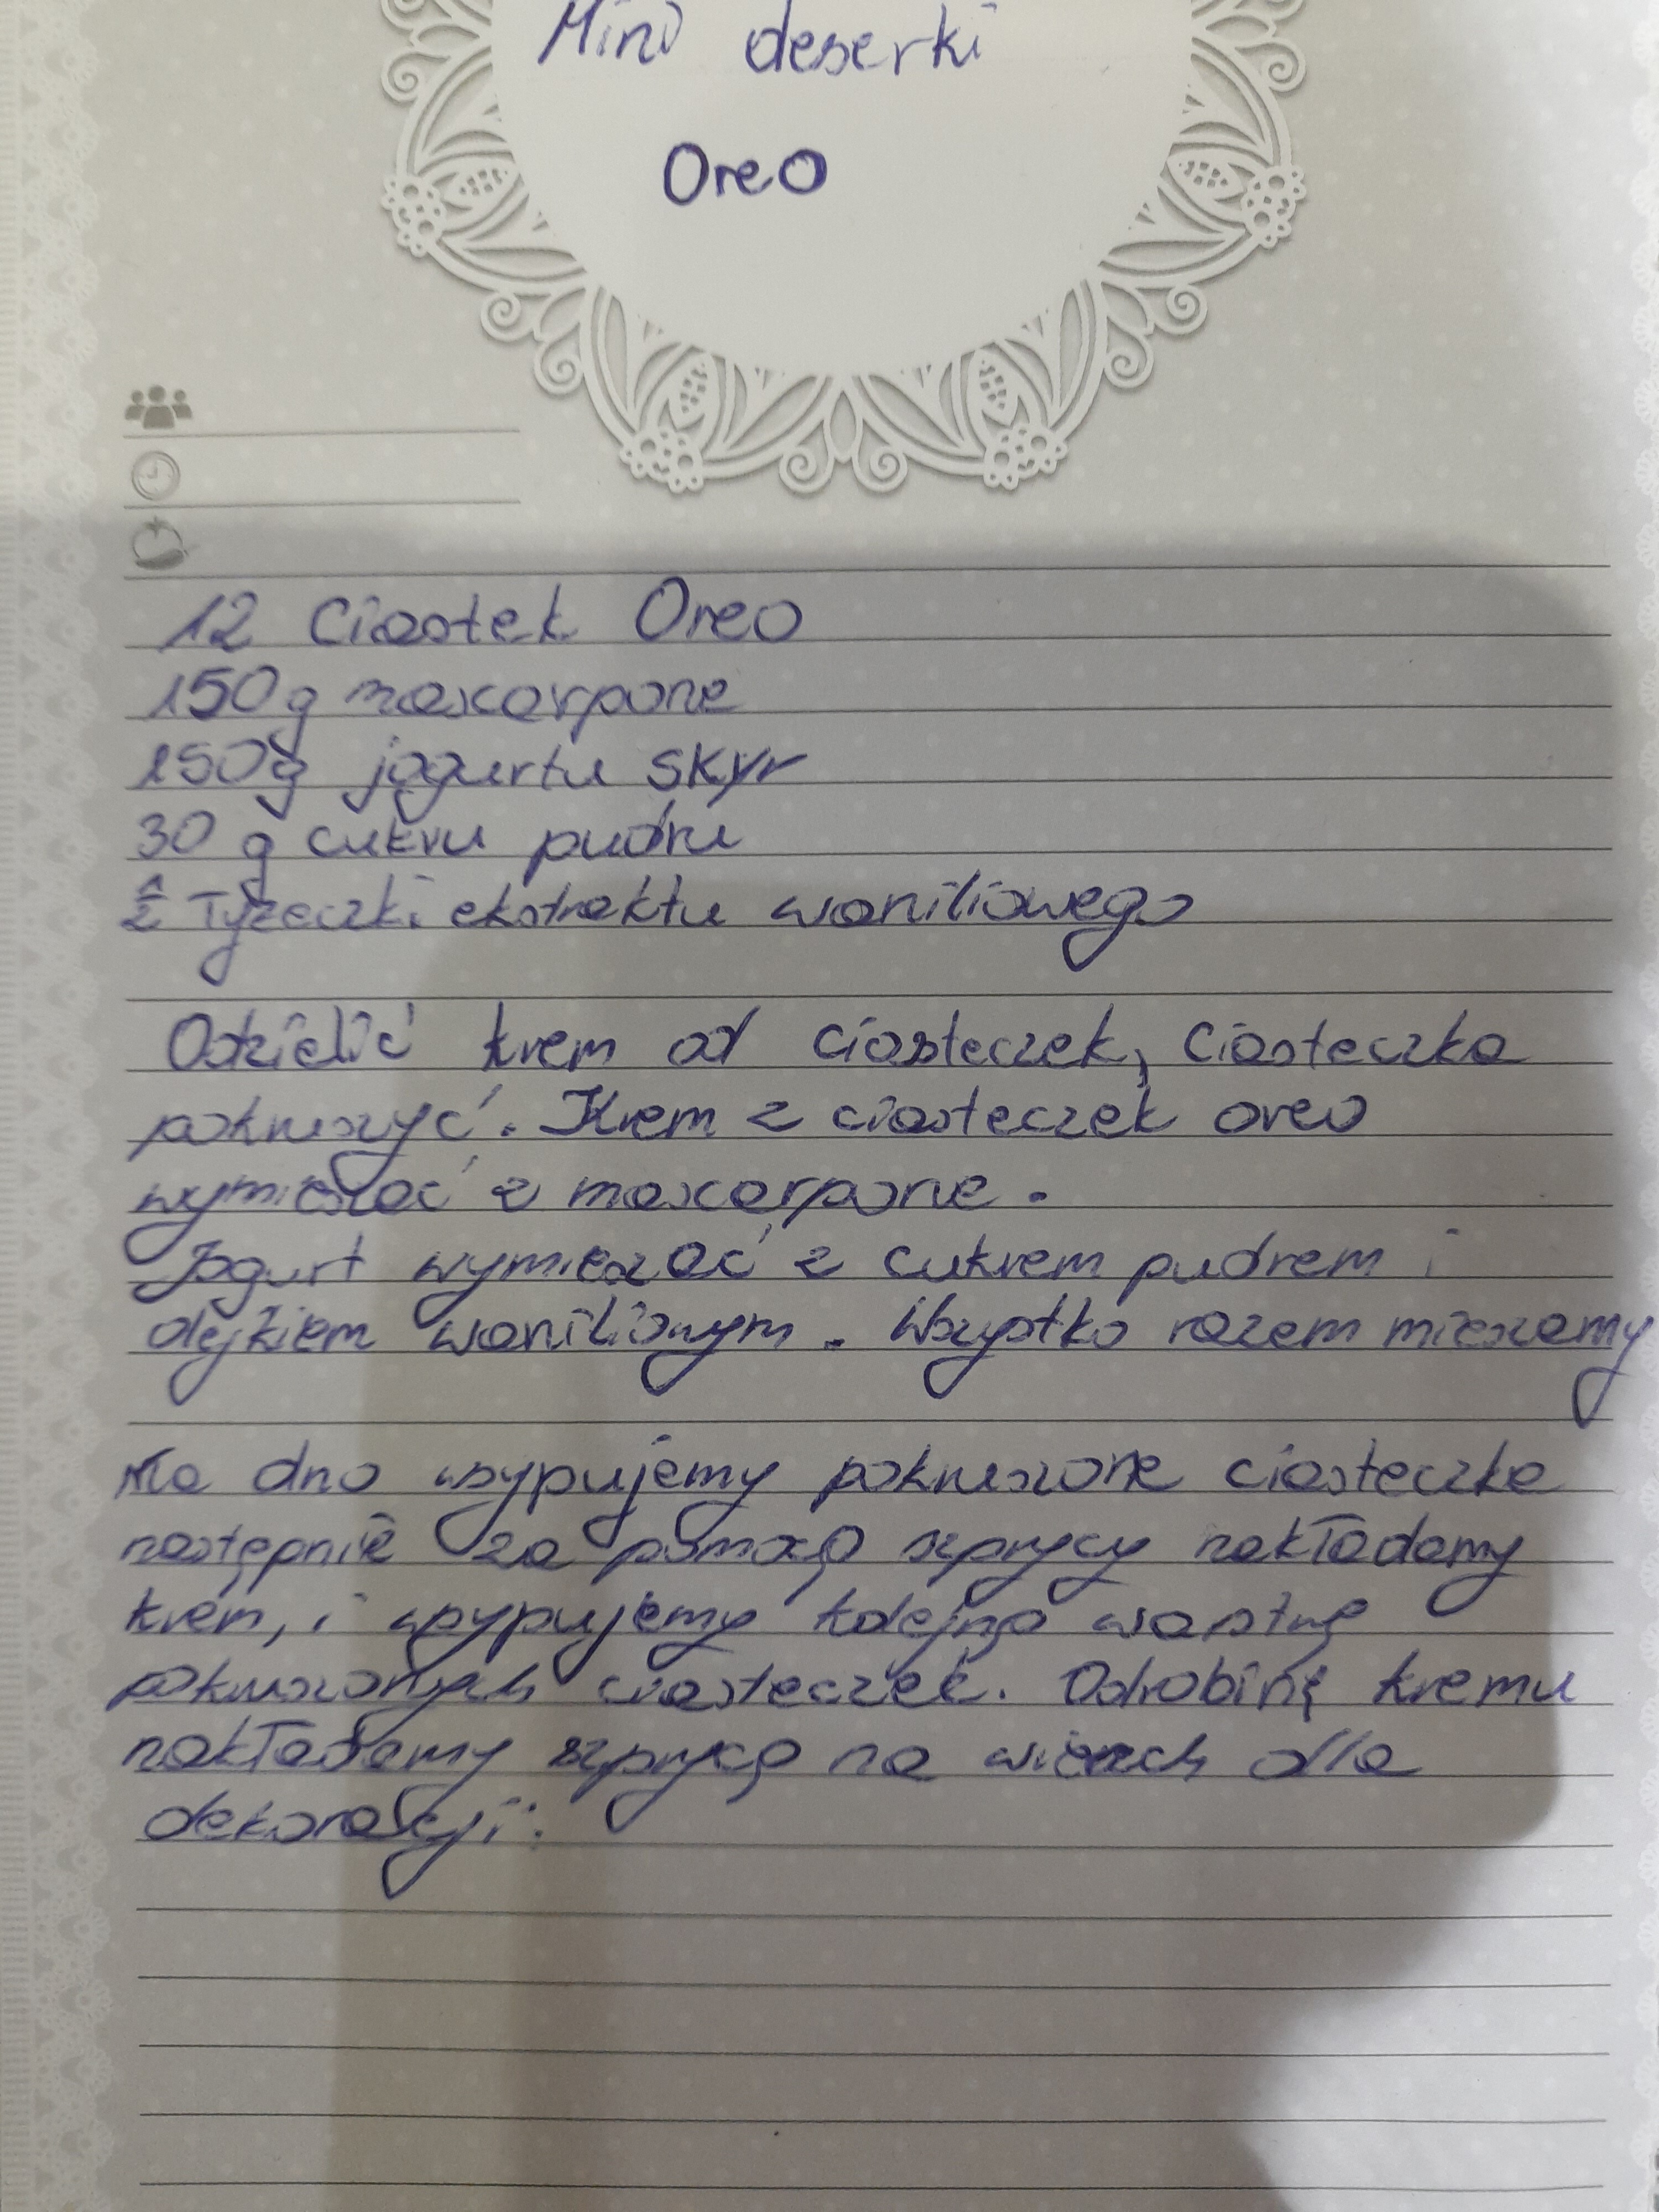 Mini deserki
Oreo
12 Ciastek Oreo
150g mascarpone
150g jogurtu skyr
30 g cukru pudru
½ Tyżeczki ekstraktu waniliowego
Odzielić krem od ciasteczek, Ciasteczka
pokruszyć. Krem z ciasteczek oreo
wymieszać z mascarpone.
Jogurt wymieszać z cukrem pudrem i
olejkiem waniliowym. Wszystko razem mieszamy
Na dno wsypujemy pokruszone ciasteczka
następnie za pomocą szprycy nakładamy
krem, i wsypujemy kolejną warstwę
pokruszonych ciasteczek. Odrobinę kremu
nakładamy szprycą na wierzch dla
dekoracji.